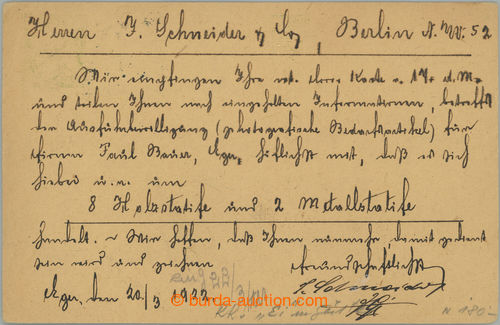 Herren J. Schneider & Co, Berlin N.W. 52
Wir empfingen Ihre Karte v. 17. d.M.
und teilen Ihnen nach eingeholten Informationen, betreffs
der Ausfuhrbewilligung (photografische Bedarfsartikel) für
Firma Paul Bauer, Eger, höflichst mit, daß es sich
hiebei u.a. um
8 Holzstatife und 2 Metallstatife
handelt. - Wir hoffen, daß Ihnen nunmehr damit gedient
sein wird und zeichnen
freundschaftlich
Eger, den 20./3 1922.
burda-auction.com